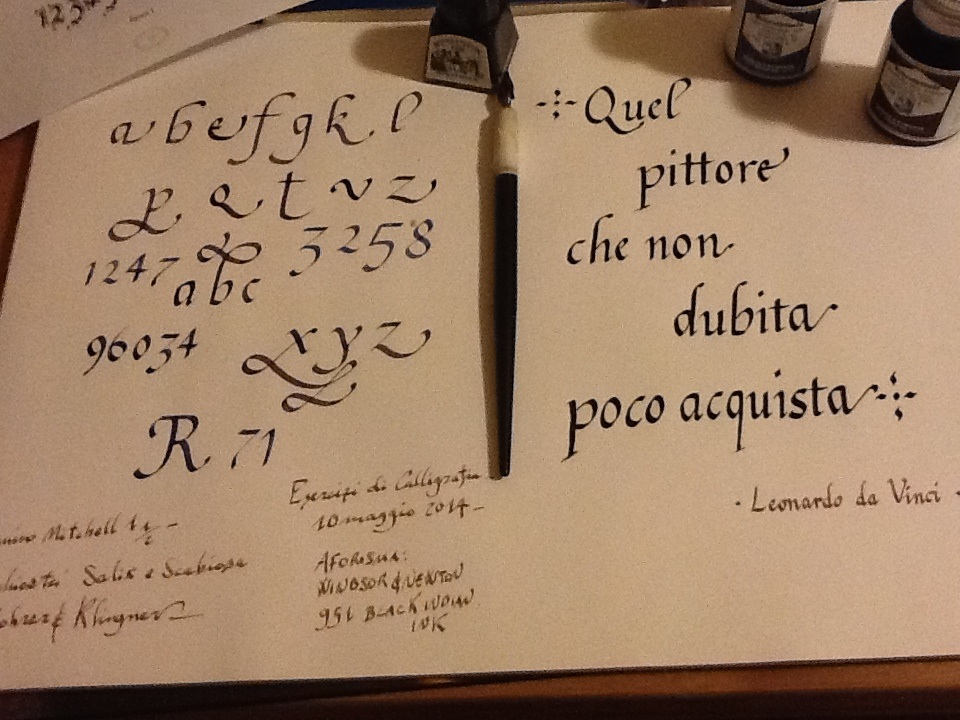 a b e f g k l
p Q t v z
1247 & 3258
abc
96034 xyz
&
R 71
Esercizi di Calligrafia
10 maggio 2014
Mitchell 1 1/2
Salix e Scabiosa
Rohrer & Klingner
AFORISMA:
WINDSOR & NEWTON
951 BLACK INDIAN
INK
Quel
pittore
che non
dubita
poco acquista
· Leonardo da Vinci ·